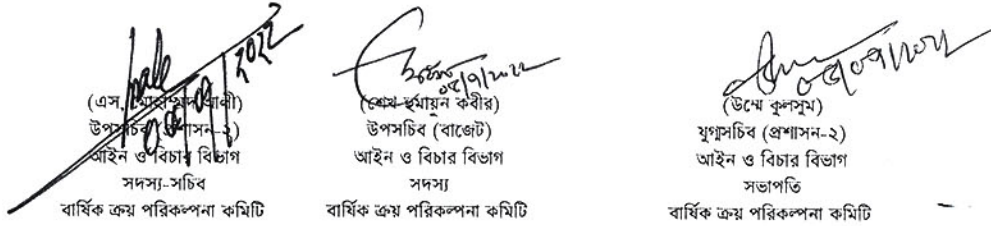 (এস, মোহাম্মদ আলী)
উপসচিব (প্রশাসন-২)
আইন ও বিচার বিভাগ
সদস্য-সচিব
বার্ষিক ক্রয় পরিকল্পনা কমিটি
(শেখ হুমায়ুন কবীর)
উপসচিব (বাজেট)
আইন ও বিচার বিভাগ
সদস্য
বার্ষিক ক্রয় পরিকল্পনা কমিটি
(উম্মে কুলসুম)
যুগ্মসচিব (প্রশাসন-২)
আইন ও বিচার বিভাগ
সভাপতি
বার্ষিক ক্রয় পরিকল্পনা কমিটি